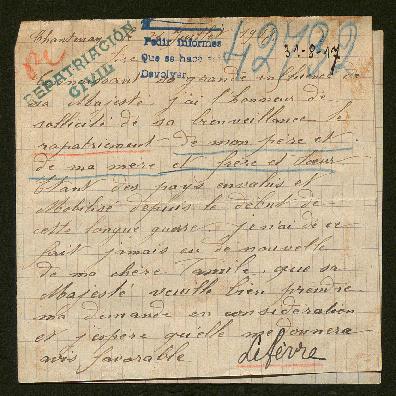 Chantenay Juillet 19
REPATRIACION
CIVIL
Pedir informes
Que se hace
Devolver
42722
31-8-17
Connaissant la grande influence de
sa Majesté j'ai l'honneur de
sollicité de sa bienveillance le
rapatriement de mon père et
de ma mère et frère et sœur
Etant des pays envahis et
Mobilisé depuis le début de
cette longue guerre je n'ai de ce
fait jamais eu de nouvelle
de ma chère Famile, que sa
Majesté veuille bien prendre
ma demande en considération
et j'espère qu'elle me donnera
avis favorable
Lefèvre